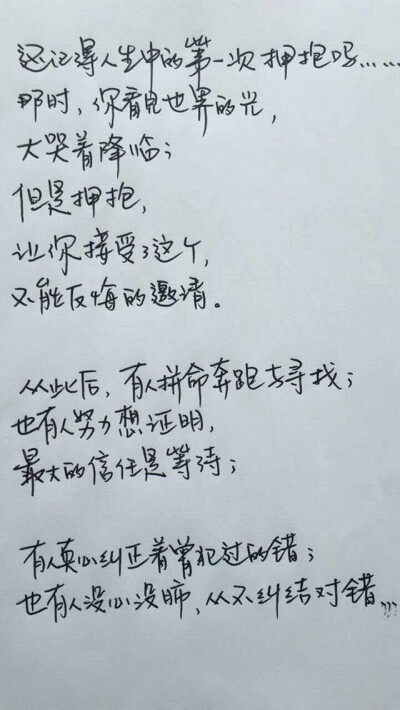 还记得人生中的第一次拥抱吗……
那时，你看见世界的光，
大哭着降临；
但是拥抱，
让你接受了这个，
不能反悔的邀请。
从此后，有人拼命奔跑去寻找；
也有人努力想证明，
最大的信任是等待；
有人真心纠正着曾犯过的错；
也有人没心没肺，从不纠结对错,,,